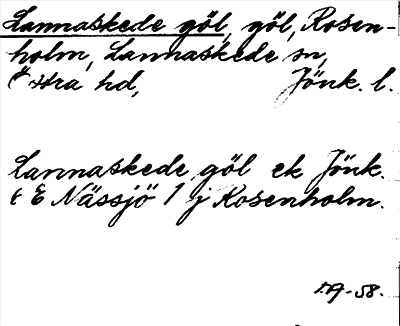 Lannaskede göl, göl, Rosen-
holm, Lannaskede sn,
Östra hd, Jönk. l.
Lannaskede göl ek Jönk.
6 E Nässjö 1 j Rosenholm.
-58.